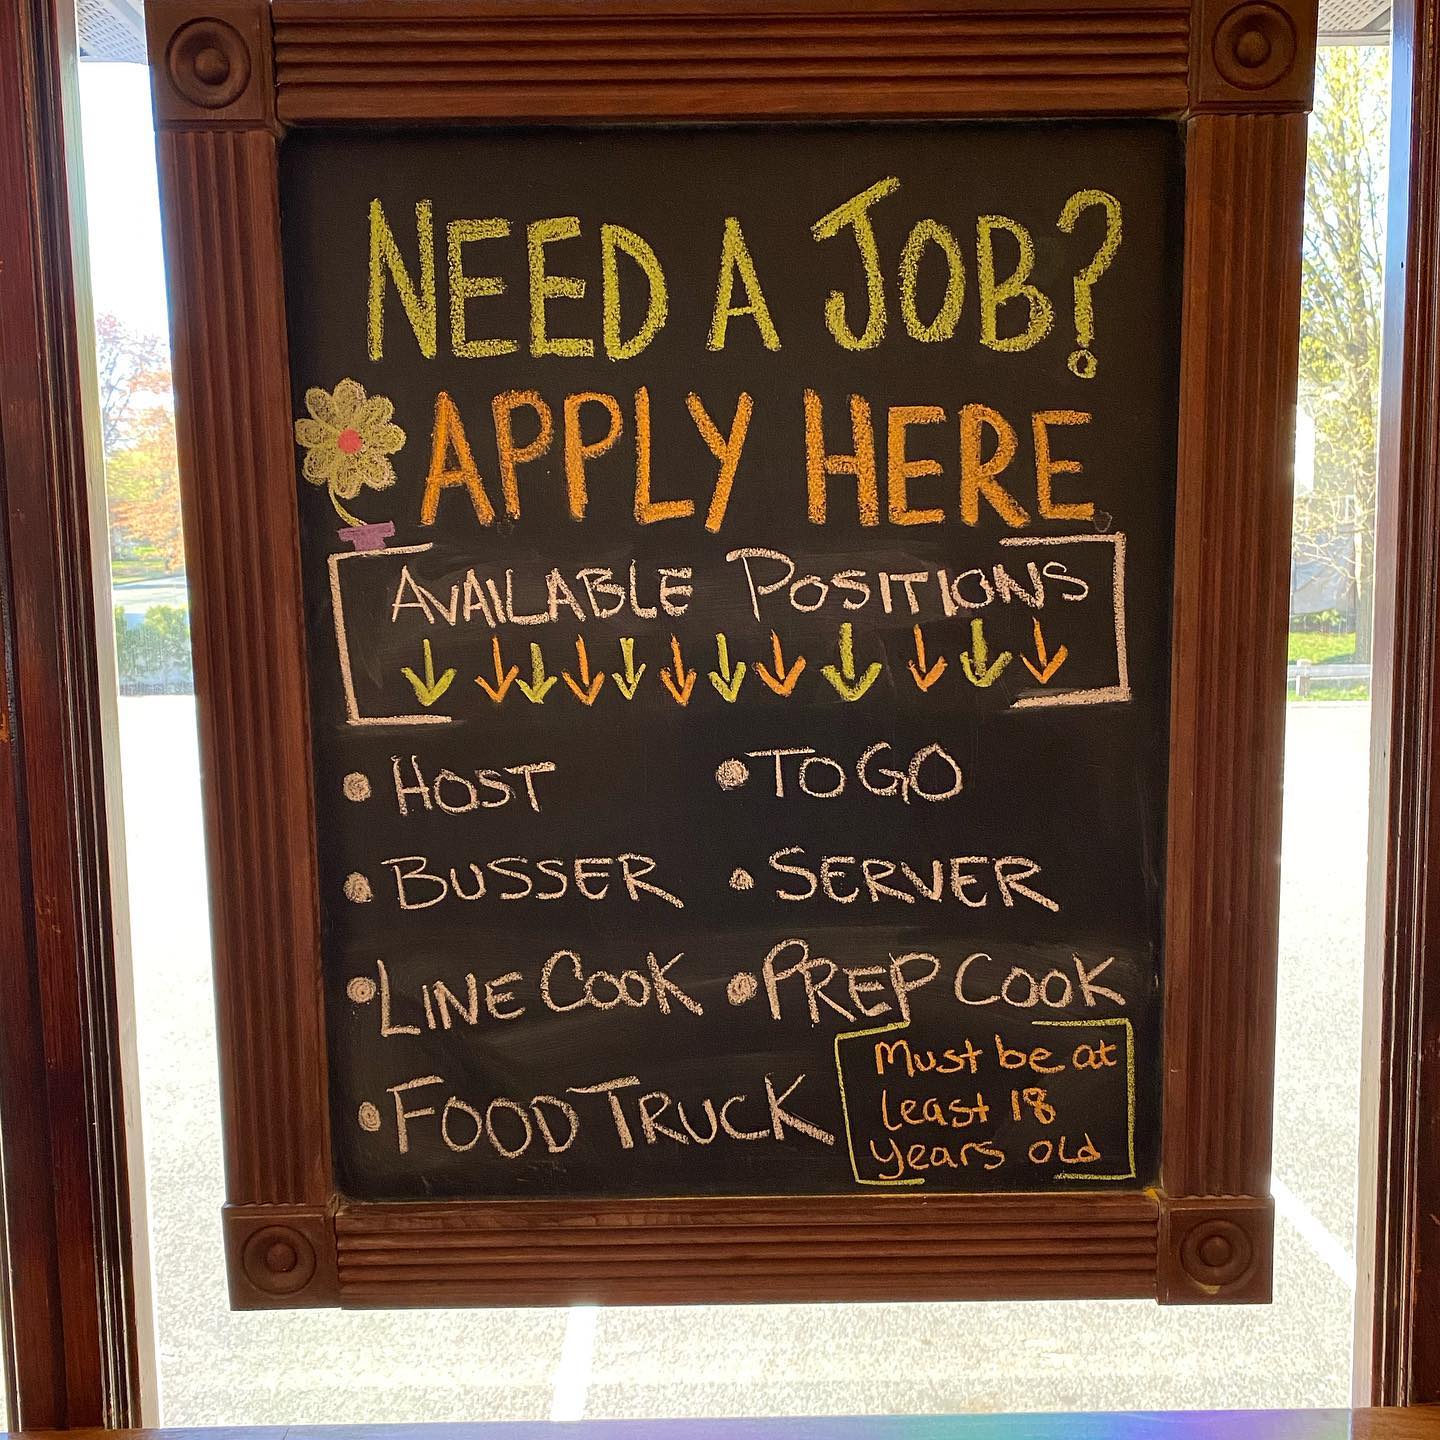 NEED A JOB?
APPLY HERE
AVAILABLE POSITIONS
• HOST
• TO GO
• BUSSER
• SERVER
• LINE COOK
• PREP COOK
• FOOD TRUCK
Must be at
least 18
years old